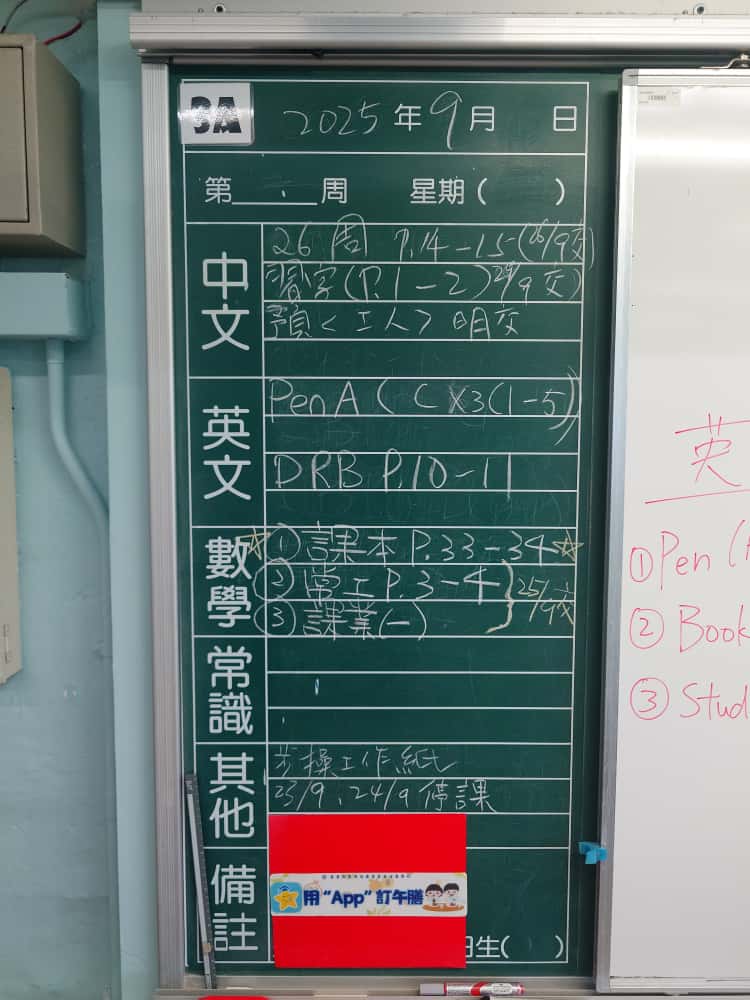 3A
2025年9月 日
第 周 星期( )
中文
26周 P.14-15(26/9交)
習字(P.1-2)29/9交)
預<工人>明交
英文
Pen A (C x3(1-5))
DRB P.10-11
數學
☆①課本 P.33-34☆
②常工P.3-4
③課業(一)
25/9交
常識
其他
步操工作紙
23/9、24/9停課
備註
用"App"訂午膳
生( )
英
①Pen (
②Book
③Stud